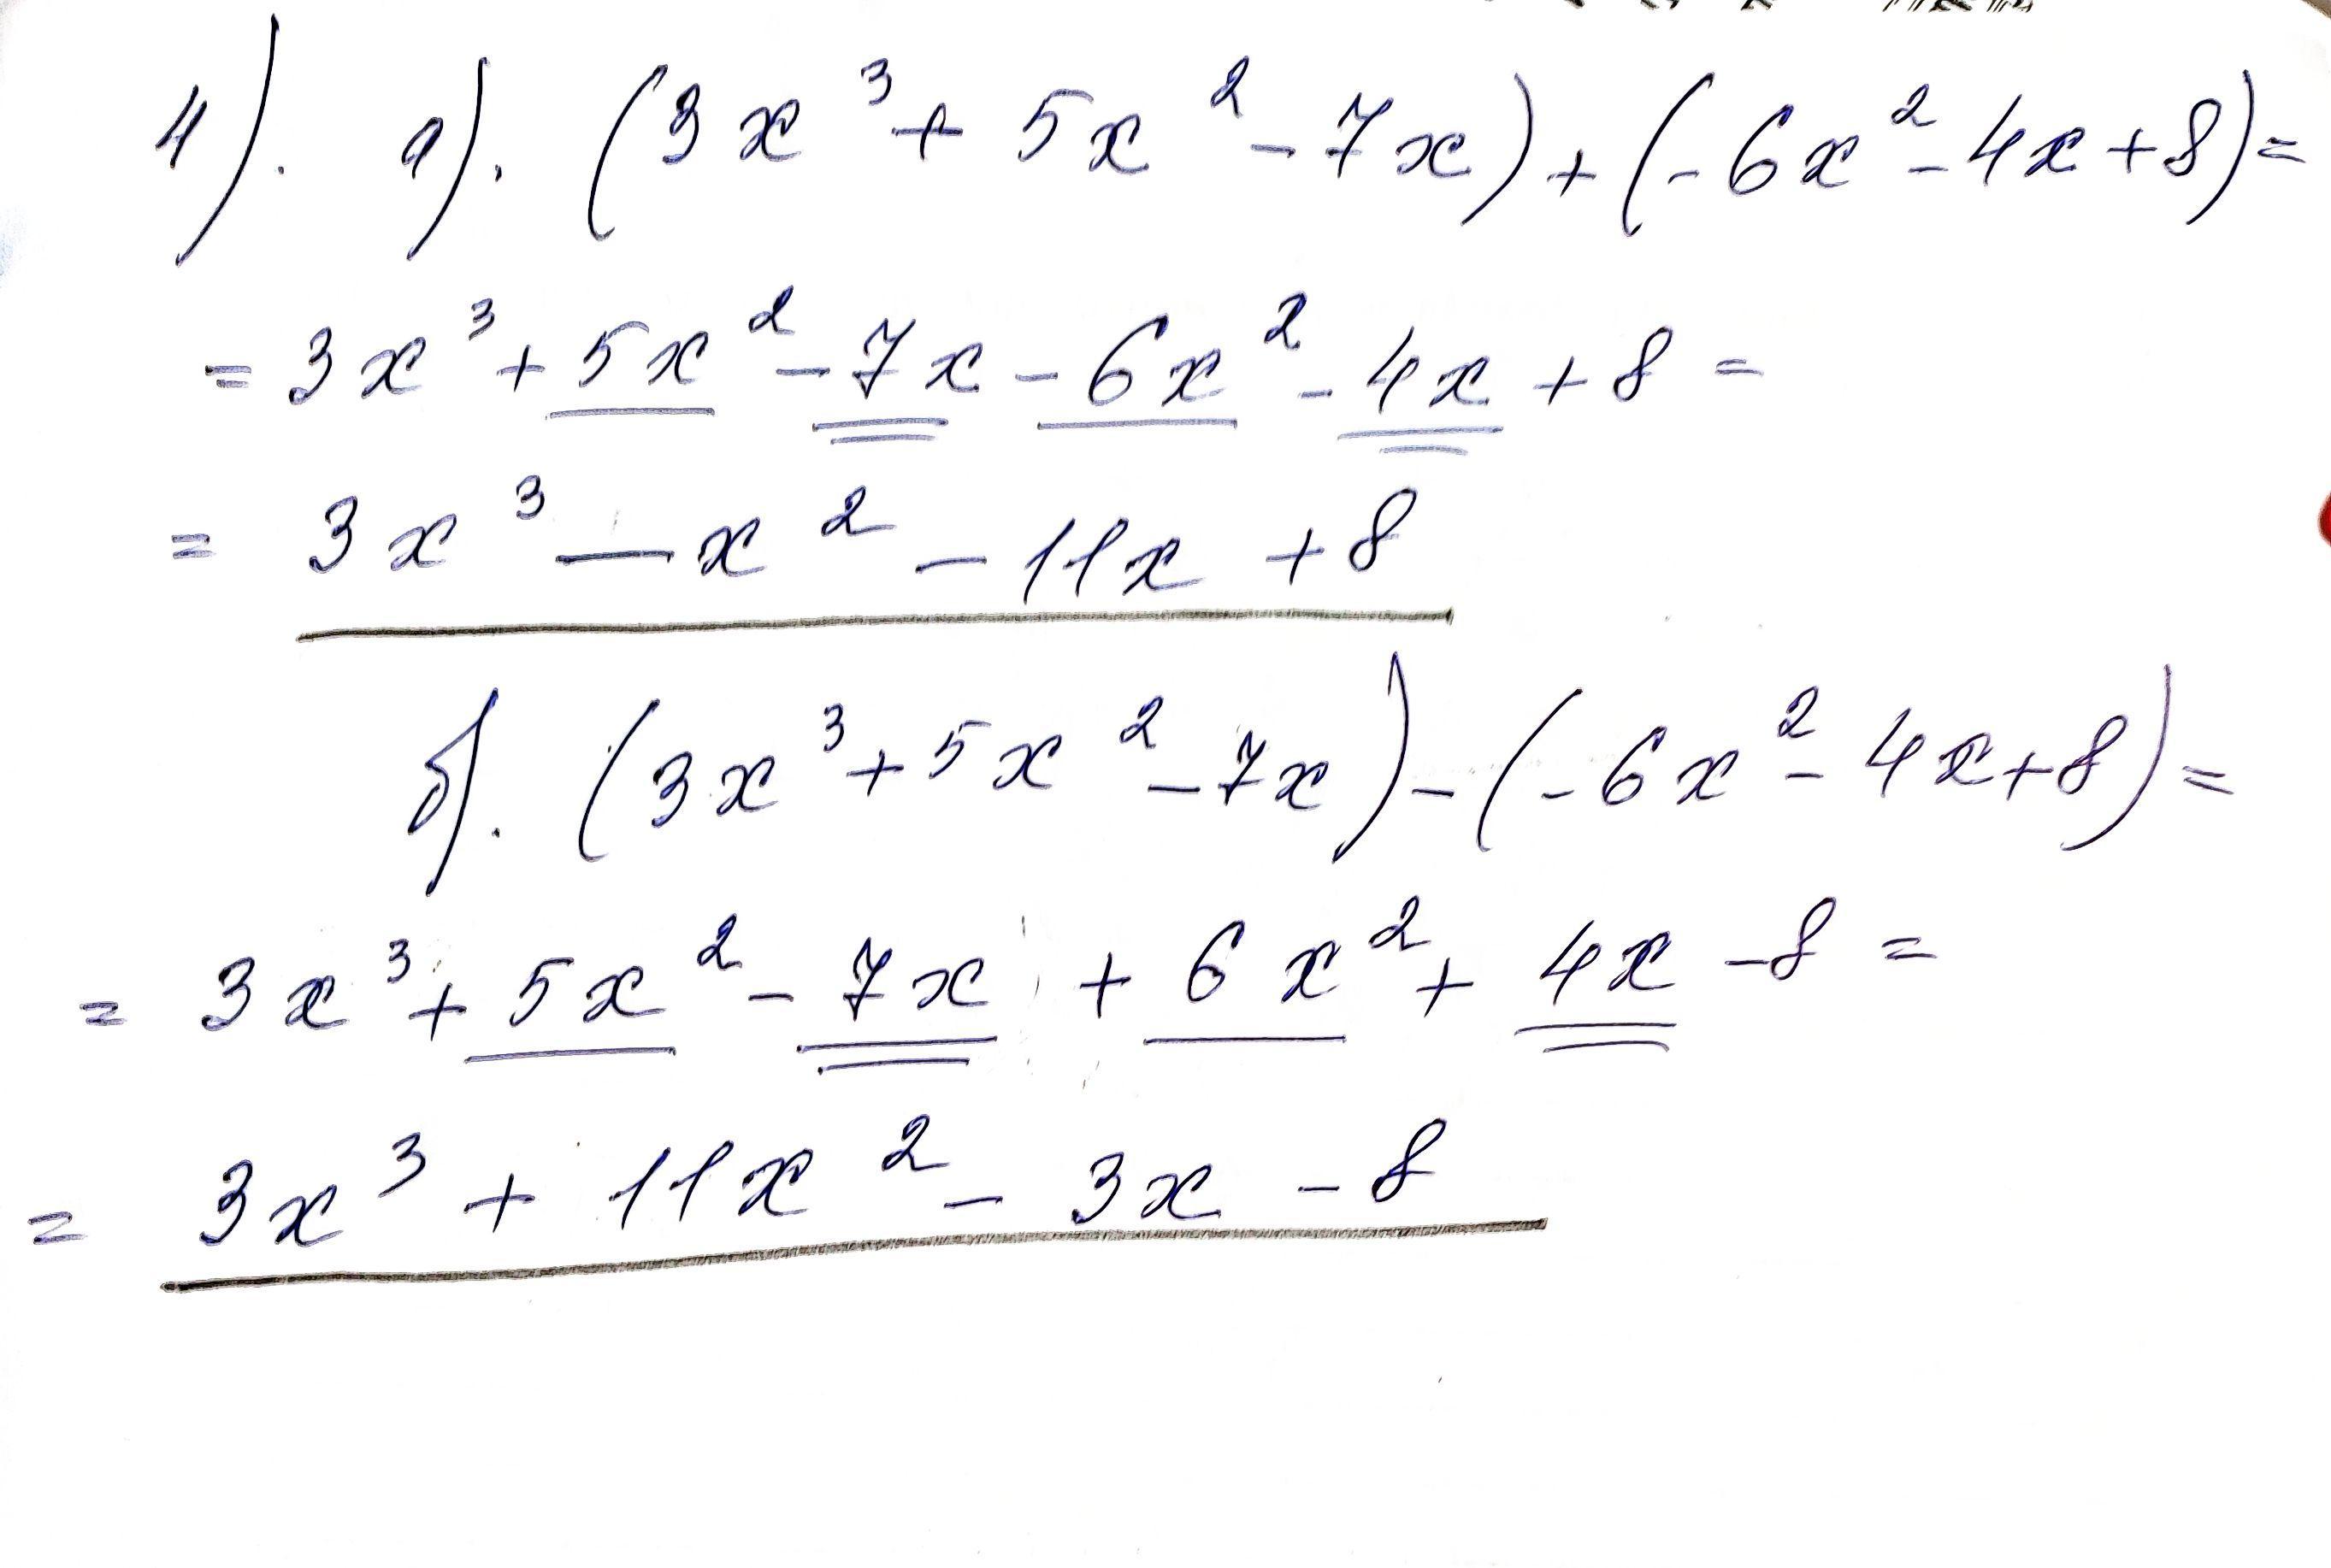 4). а). (3x³ + 5x² - 7x) + (-6x² - 4x + 8) =
= 3x³ + 5x² - 7x - 6x² - 4x + 8 =
= 3x³ - x² - 11x + 8
б). (3x³ + 5x² - 7x) - (-6x² - 4x + 8) =
= 3x³ + 5x² - 7x + 6x² + 4x - 8 =
= 3x³ + 11x² - 3x - 8